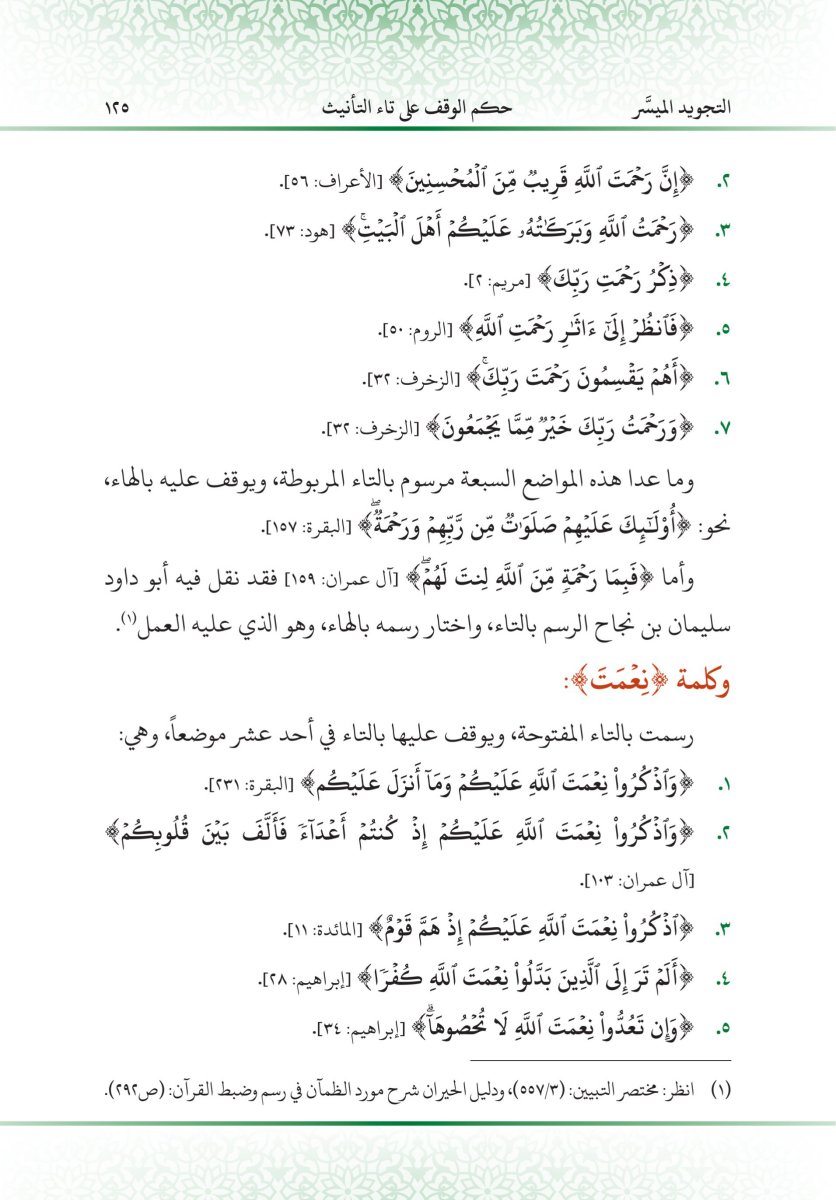 التجويد الميسَّر حكم الوقف على تاء التأنيث ١٢٥
٢. ﴿إِنَّ رَحۡمَتَ ٱللَّهِ قَرِيبٞ مِّنَ ٱلۡمُحۡسِنِينَ﴾ [الأعراف: ٥٦].
٣. ﴿رَحۡمَتُ ٱللَّهِ وَبَرَكَٰتُهُۥ عَلَيۡكُمۡ أَهۡلَ ٱلۡبَيۡتِۚ﴾ [هود: ٧٣].
٤. ﴿ذِكۡرُ رَحۡمَتِ رَبِّكَ﴾ [مريم: ٢].
٥. ﴿فَٱنظُرۡ إِلَىٰٓ ءَاثَٰرِ رَحۡمَتِ ٱللَّهِ﴾ [الروم: ٥٠].
٦. ﴿أَهُمۡ يَقۡسِمُونَ رَحۡمَتَ رَبِّكَۚ﴾ [الزخرف: ٣٢].
٧. ﴿وَرَحۡمَتُ رَبِّكَ خَيۡرٞ مِّمَّا يَجۡمَعُونَ﴾ [الزخرف: ٣٢].
وما عدا هذه المواضع السبعة مرسوم بالتاء المربوطة، ويوقف عليه بالهاء،
نحو: ﴿أُوْلَٰٓئِكَ عَلَيۡهِمۡ صَلَوَٰتٞ مِّن رَّبِّهِمۡ وَرَحۡمَةٞۖ﴾ [البقرة: ١٥٧].
وأما ﴿فَبِمَا رَحۡمَةٖ مِّنَ ٱللَّهِ لِنتَ لَهُمۡۖ﴾ [آل عمران: ١٥٩] فقد نقل فيه أبو داود
سليمان بن نجاح الرسم بالتاء، واختار رسمه بالهاء، وهو الذي عليه العمل(١).
وكلمة ﴿نِعۡمَتَ﴾:
رسمت بالتاء المفتوحة، ويوقف عليها بالتاء في أحد عشر موضعاً، وهي:
١. ﴿وَٱذۡكُرُواْ نِعۡمَتَ ٱللَّهِ عَلَيۡكُمۡ وَمَآ أَنزَلَ عَلَيۡكُم﴾ [البقرة: ٢٣١].
٢. ﴿وَٱذۡكُرُواْ نِعۡمَتَ ٱللَّهِ عَلَيۡكُمۡ إِذۡ كُنتُمۡ أَعۡدَآءٗ فَأَلَّفَ بَيۡنَ قُلُوبِكُمۡ﴾
[آل عمران: ١٠٣].
٣. ﴿ٱذۡكُرُواْ نِعۡمَتَ ٱللَّهِ عَلَيۡكُمۡ إِذۡ هَمَّ قَوۡمٌ﴾ [المائدة: ١١].
٤. ﴿أَلَمۡ تَرَ إِلَى ٱلَّذِينَ بَدَّلُواْ نِعۡمَتَ ٱللَّهِ كُفۡرٗا﴾ [إبراهيم: ٢٨].
٥. ﴿وَإِن تَعُدُّواْ نِعۡمَتَ ٱللَّهِ لَا تُحۡصُوهَآۗ﴾ [إبراهيم: ٣٤].
(١) انظر: مختصر التبيين: (٥٥٧/٣)، ودليل الحيران شرح مورد الظمآن في رسم وضبط القرآن: (ص٢٩٢).